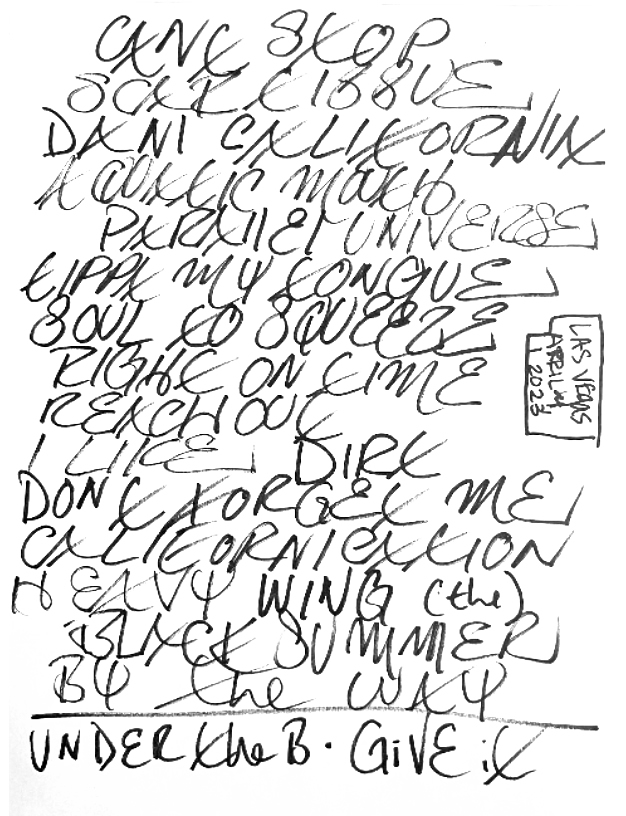 CANT STOP
SCAR TISSUE
DANI CALIFORNIA
AQUATIC MOUTH
PARALLEL UNIVERSE
TIPPA MY TONGUE
SOUL TO SQUEEZE
RIGHT ON TIME
REACH OUT
I LIKE DIRT
DONT FORGET ME
CALIFORNICATION
HEAVY WING (the)
BLACK SUMMER
BY the WAY
UNDER the B. GiVE iT
LAS VEGAS
APRIL
1 2023